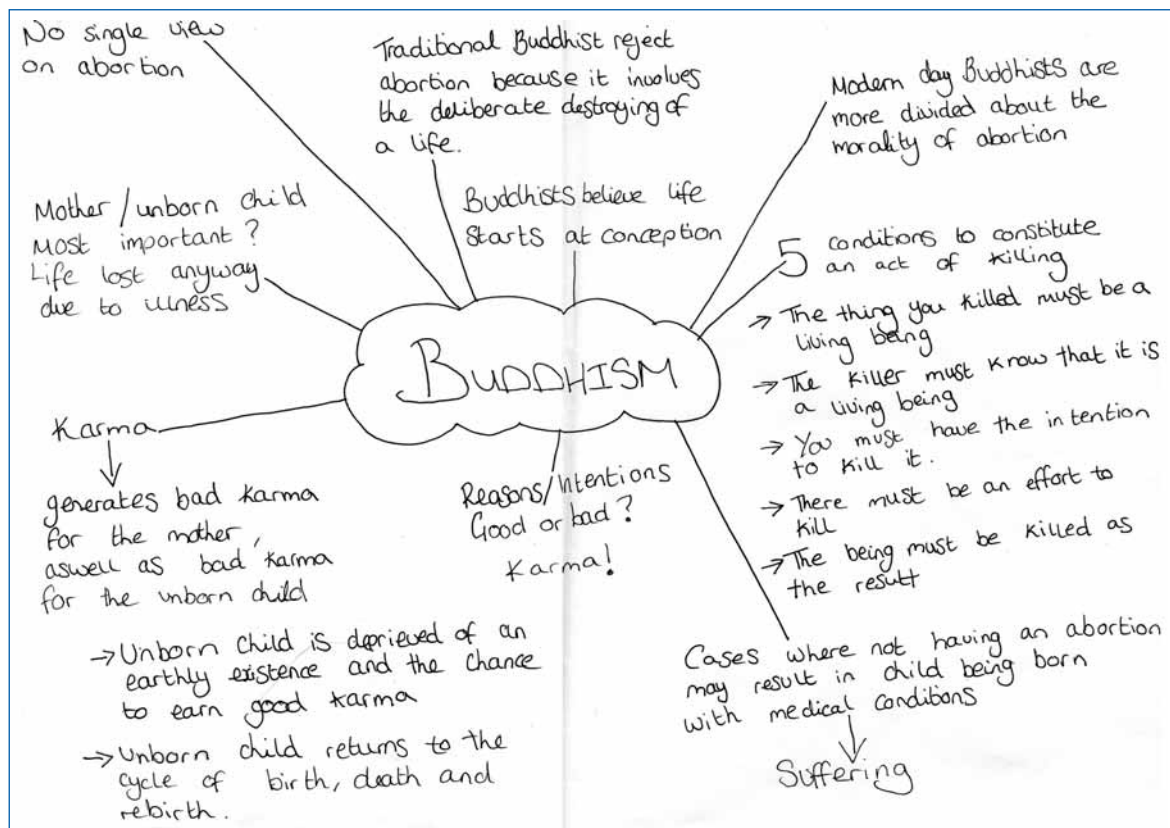 No single view
on abortion
Traditional Buddhist reject
abortion because it involves
the deliberate destroying of
a life.
Modern day Buddhists are
more divided about the
morality of abortion
Mother / unborn child
most important?
Life lost anyway
due to illness
Buddhists believe life
starts at conception
5 conditions to constitute
an act of killing
→ The thing you killed must be a
living being
→ The killer must know that it is
a living being
→ You must have the intention
to kill it.
→ There must be an effort to
kill
→ The being must be killed as
the result
BUDDHISM
Karma
generates bad karma
for the mother,
aswell as bad karma
for the unborn child
→ Unborn child is deprieved of an
earthly existence and the chance
to earn good karma
→ Unborn child returns to the
cycle of birth, death and
rebirth.
Reasons/Intentions
Good or bad?
Karma!
Cases where not having an abortion
may result in child being born
with medical conditions
Suffering